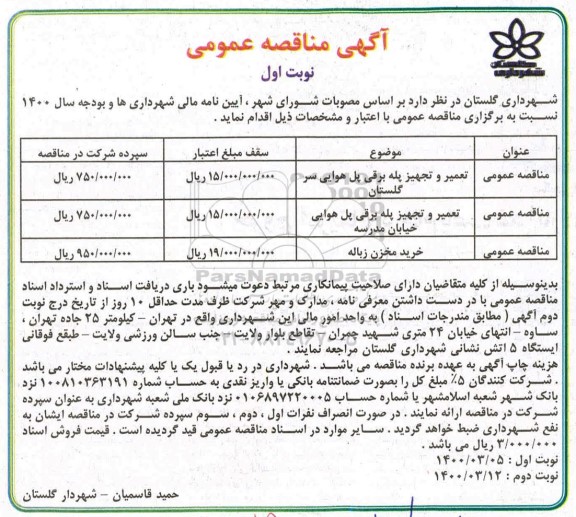 آگهی مناقصه عمومی
نوبت اول
شهرداری گلستان
شـهرداری گلستان در نظر دارد بر اساس مصوبات شـورای شهر ، آیین نامه مالی شهرداری ها و بودجه سال ۱۴۰۰
نسبت به برگزاری مناقصه عمومی با اعتبار و مشخصات ذیل اقدام نماید .
عنوان | موضوع | سقف مبلغ اعتبار | سپرده شرکت در مناقصه
مناقصه عمومی | تعمیر و تجهیز پله برقی پل هوایی سر گلستان | ۱۵/۰۰۰/۰۰۰/۰۰۰ ریال | ۷۵۰/۰۰۰/۰۰۰ ریال
مناقصه عمومی | تعمیر و تجهیز پله برقی پل هوایی خیابان مدرسه | ۱۵/۰۰۰/۰۰۰/۰۰۰ ریال | ۷۵۰/۰۰۰/۰۰۰ ریال
مناقصه عمومی | خرید مخزن زباله | ۱۹/۰۰۰/۰۰۰/۰۰۰ ریال | ۹۵۰/۰۰۰/۰۰۰ ریال
ParsNamadData
بدینوسیله از کلیه متقاضیان دارای صلاحیت پیمانکاری مرتبط دعوت میشـود باری دریافت اسـناد و استرداد اسناد
مناقصه عمومی با در دست داشتن معرفی نامه ، مدارک و مهر شرکت ظرف مدت حداقل ۱۰ روز از تاریخ درج نوبت
دوم آگهی ( مطابق مندرجات اسـناد ) به واحد امور مالی این شـهرداری واقع در تهران – کیلومتر ۲۵ جاده تهران ،
ساوه – انتهای خیابان ۲۴ متری شـهید چمران – تقاطع بلوار ولایت – جنب سالن ورزشی ولایت – طبقع فوقانی
ایستگاه ۵ آتش نشانی شهرداری گلستان مراجعه نمایند .
هزینه چاپ آگهی به عهده برنده مناقصه می باشـد . شهرداری در رد یا قبول یک یا کلیه پیشنهادات مختار می باشد
. شرکت کنندگان ۵٪ مبلغ کل را بصورت ضمانتنامه بانکی یا واریز نقدی به حساب شماره ۱۰۰۸۱۰۳۶۳۱۹۱ نزد
بانک شهر شعبه اسلامشهر یا شماره حساب ۰۱۰۶۸۹۷۲۲۰۰۰۵ نزد بانک ملی شعبه شهرداری به عنوان سپرده
شرکت در مناقصه ارائه نمایند . در صورت انصراف نفرات اول ، دوم ، سـوم سپرده شرکت در مناقصه ایشان به
نفع شهرداری ضبط خواهد گردید . سایر موارد در اسناد مناقصه عمومی قید گردیده است . قیمت فروش اسناد
۳/۰۰۰/۰۰۰ ریال می باشد .
نوبت اول : ۱۴۰۰/۰۳/۰۵
نوبت دوم : ۱۴۰۰/۰۳/۱۲
حمید قاسمیان – شهردار گلستان